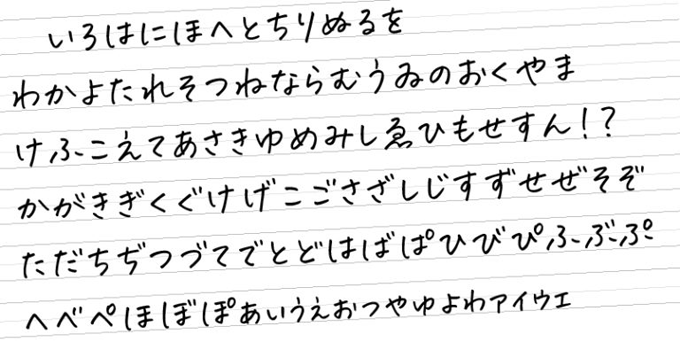 いろはにほへとちりぬるを
わかよたれそつねならむうゐのおくやま
けふこえてあさきゆめみしゑひもせすん!?
かがきぎくぐけげこごさざしじすずせぜそぞ
ただちぢつづてでとどはばぱひびぴふぶぷ
へべぺほぼぽあいうえおつやゆよわアイウエ